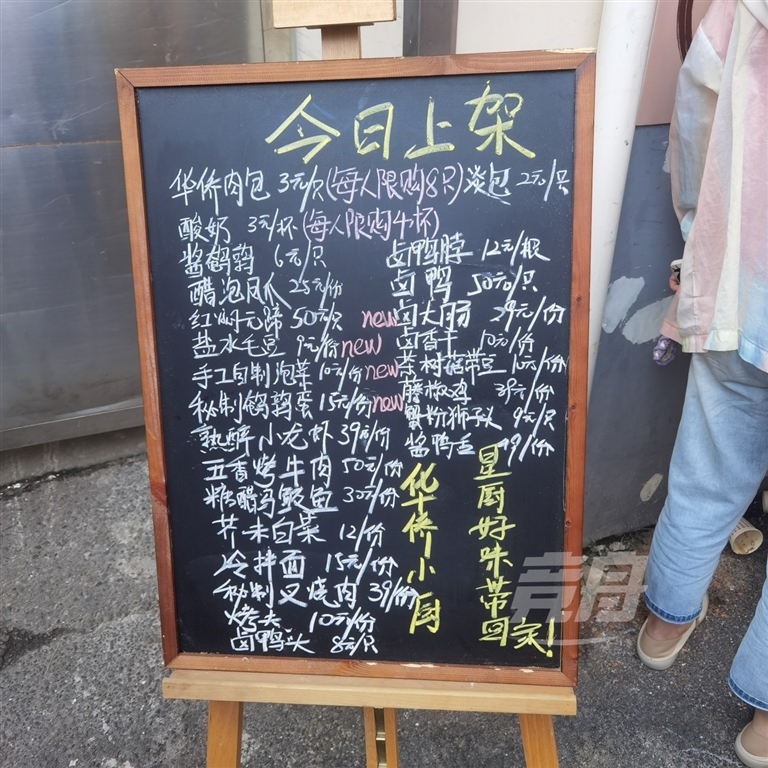 今日上架
华侨肉包 3元/只(每人限购8只) 淡包 2元/只
酸奶 3元/杯(每人限购4杯)
酱鹌鹑 6元/只 卤鸭脖 12元/根
醋泡凤爪 25元/份 卤鸭 50元/只
红焖元蹄 50元/只 new 卤大肠 29元/份
盐水毛豆 9元/份 new 卤香干 10元/份
手工自制泡菜 10元/份 new 茶树菇带豆 10元/份
秘制鹌鹑蛋 15元/份 new 藤椒鸡 39元/份
熟醉小龙虾 39元/份 蟹粉狮子头 9元/只
五香烤牛肉 50元/份 酱鸭舌 /份
糖醋马鲛鱼 30元/份
芥末白菜 12/份
冷拌面 15元/份
秘制叉烧肉 39/份
烤夫 10元/份
卤鸭头 8元/只
华侨小厨
星厨好味带回家!